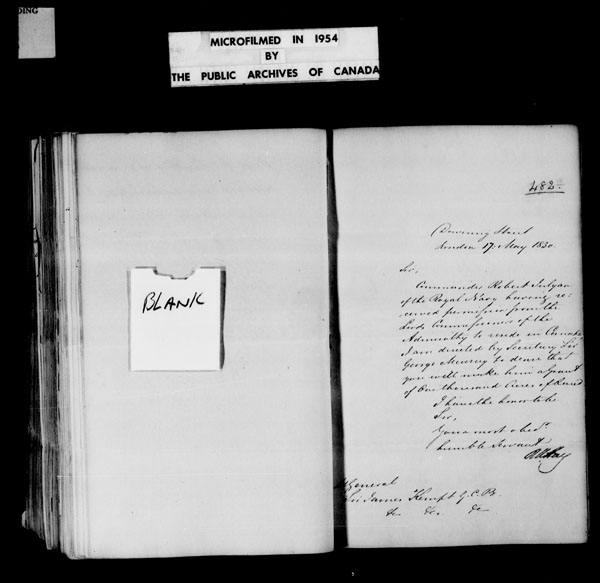 DING
MICROFILMED IN 1954
BY
THE PUBLIC ARCHIVES OF CANADA
BLANK
482
Downing Street
London 17 May 1830
Sir,
Commander Robert
of the Royal Navy having re-
ceived permission from the
Lords Commissioners of the
Admiralty to reside in Canada
I am directed by Secretary Sir
George Murray to desire that
you will make him a Grant
of One thousand Acres of Land
I have the honor to be
Sir,
Your most obedt
humble Servant
R W Hay
General
Sir James Kempt G.C.B.
&c &c &c